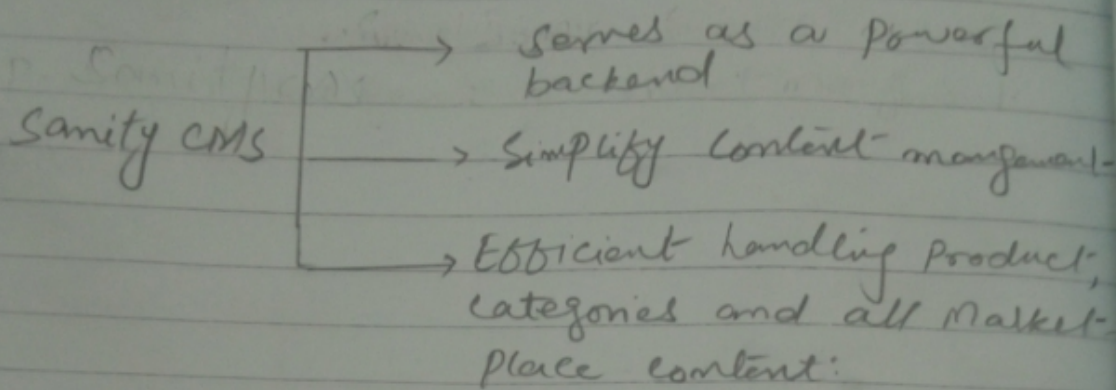 Serves as a Powerful
backend
Sanity CMS
Simplify Content mangement
Efficient handling Product,
Categories and all Market
Place content.